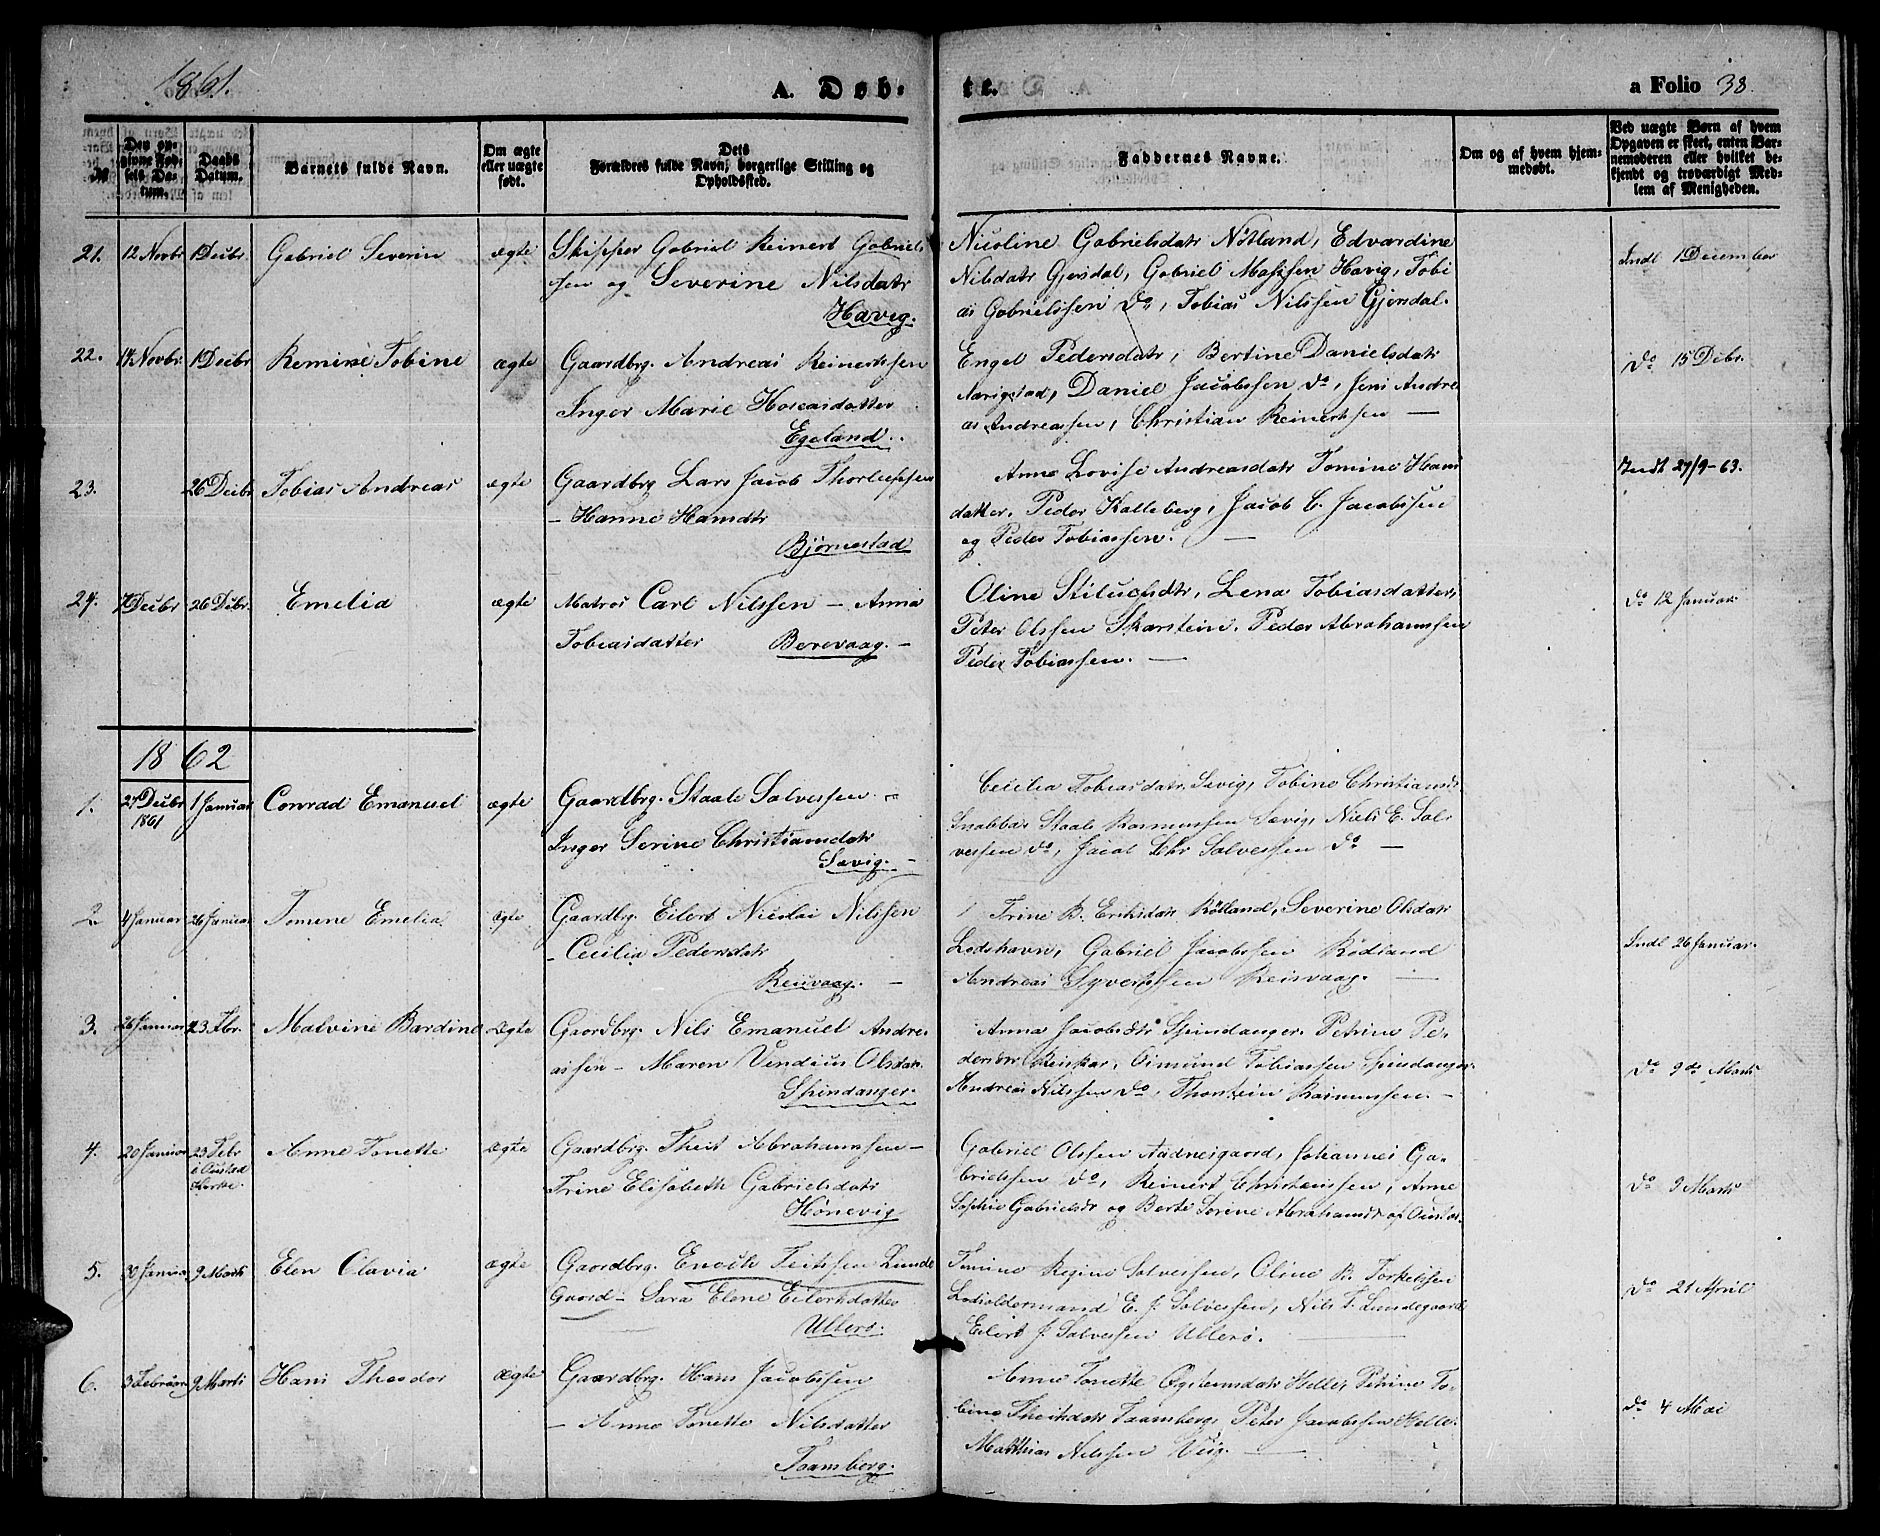 1861.
A. Døb-
te.
a Folio 38.
No
Den op-
givne Fød-
sels Da-
tum.
Daabs
Datum.
Barnets fulde Navn.
Om ægte
eller uægte
født.
Dets
Forældres fulde Navn, borgerlige Stilling og
Opholdssted.
Faddernes Navne.
Om og af hvem hjem-
medøbt.
Ved uægte Børn af hvem
Opgaven er skeet, enten Bar-
nemoderen eller hvilket be-
kjendt og troværdigt Med-
lem af Menigheden.
21. 12 Novbr 1 Decbr Gabriel Severin ægte Skipper Gabriel Reinert Gabriel-
sen og Severine Nilsdatr
Havig.
Nicoline Gabrielsdatr Nøtland, Edvardine
Nilsdatr Gjersdal, Gabriel Massen Havig, Tobi
as Gabrielssen do, Tobias Nilssen Gjersdal.
Indl 1 December
22. 14 Novbr. 1 Decbr Tobine ægte Gaardbrg. Andreas Reinertssen
Inger Marie Hoseasdatter
Egeland.
Engel Pedersdatr, Bertine Danielsdatr
Narigstad, Daniel Jacobssen do, Jens Andre
as Andreassen, Christian Reinertssen —
do 15 Debr.
23. 26 Decbr Tobias Andreas ægte Gaardbrg Lars Jacob
– Hanne Hansdtr
Bjørnestad
Anne Lovise Andreasdatr Tomine Hans
datter. Peder Kalleberg, Jacob C. Jacobssen
og Peder Tobiassen. —
Indl 27/9-63.
24. 7 Decbr 26 Debr. Emelia ægte Matros Carl Nilssen – Anna
Tobiasdatter Berevaag. –
Oline Lena Tobiasdatter,
Peter Olssen Skarstein. Peder Abrahamssen
Peder Tobiassen. —
do 12 Januar.
1862
1. 27 Decbr
1861 1 Januar Conrad Emanuel ægte Gaardbrg. Staale Salvessen –
Inger Serine Christiansdatr
Sævig. –
Cecilia Tobiasdatr. Sævig, Tobine Christiansdr
Staale Rasmussen Sævig, Niels E. Sal-
vessen do, Jacob Chr Salvessen do —
2 4 Januar 26 Januar Tomine Emelia ægte Gaardbrg. Eilert Nicolai Nilssen
– Cecilia Pedersdatr
Reisvaag. –
Trine B. Eriksdatr Rølland, Severine Olsdatr
Lodshavn, Gabriel Jacobssen Rødland
Andreas Syvertssen Reisvaag. —
Indl 26 Januar.
3. 26 Januar 23 Fbr. Malvine Bardine ægte Gaardbrg. Nils Emanuel Andre-
assen – Maren Olsdatr.
Spindanger.
Anna Jacobsdtr Spindanger. Petrine Pe-
Tobiassen Spindanger
Andreas Nilssen do, Rasmussen. –
do 9de Marts
4. 20 Januar 23 Febr
i
Kirke. Anne Tonette ægte Gaardbrg. Theis Abrahamssen –
Trine Elisabeth Gabrielsdatr
Hønevig
Gabriel Olssen Aadnesgaard, Johannes Ga-
brielssen do, Reinert Christenssen, Anne
Sophie Gabrielsdr og Berte Serine Abrahamsdr af
do 9 Marts
5. 30 Januar 9 Marts Elen Olavia ægte Gaardbrg. Enoch Feitssen Lunde
gaard – Sara Elene Eilertsdatter
Ullerø.
Tomine Regine Salvessen, Oline B. Torkelssen
Lodsoldermand E. J. Salvessen, Nils T. Lundegaard
Eilert J. Salvessen Ullerø. —
do 21 April
6. 3 Februar 9 Marts Hans Theodor ægte Gaardbrg. Hans Jacobssen
– Anne Tonette Nilsdatter
Taamberg.
Anne Tonette Helle, Petrine To-
bine Theisdatr Taamberg, Peter Jacobssen Helle.
Matthias Nilssen —
do 4 Mai